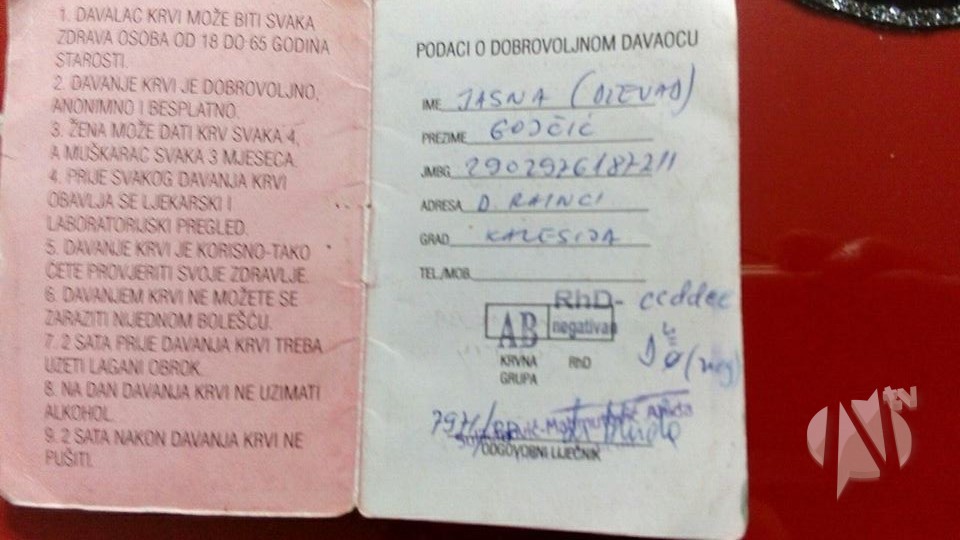 1. DAVALAC KRVI MOŽE BITI SVAKA
ZDRAVA OSOBA OD 18 DO 65 GODINA
STAROSTI.
2. DAVANJE KRVI JE DOBROVOLJNO,
ANONIMNO I BESPLATNO.
3. ŽENA MOŽE DATI KRV SVAKA 4,
A MUŠKARAC SVAKA 3 MJESECA.
4. PRIJE SVAKOG DAVANJA KRVI
OBAVLJA SE LJEKARSKI I
LABORATORIJSKI PREGLED.
5. DAVANJE KRVI JE KORISNO-TAKO
ĆETE PROVJERITI SVOJE ZDRAVLJE.
6. DAVANJEM KRVI NE MOŽETE SE
ZARAZITI NIJEDNOM BOLEŠĆU.
7. 2 SATA PRIJE DAVANJA KRVI TREBA
UZETI LAGANI OBROK.
8. NA DAN DAVANJA KRVI NE UZIMATI
ALKOHOL.
9. 2 SATA NAKON DAVANJA KRVI NE
PUŠITI.
PODACI O DOBROVOLJNOM DAVAOCU
IME JASNA (DŽEVAD)
PREZIME GOJČIĆ
JMBG 2902976187211
ADRESA D. RAINCI
GRAD KALESIJA
TEL./MOB.
RhD- ccddee
AB negativan
KRVNA RhD
GRUPA
(neg)
ODGOVORNI LIJEČNIK
tv